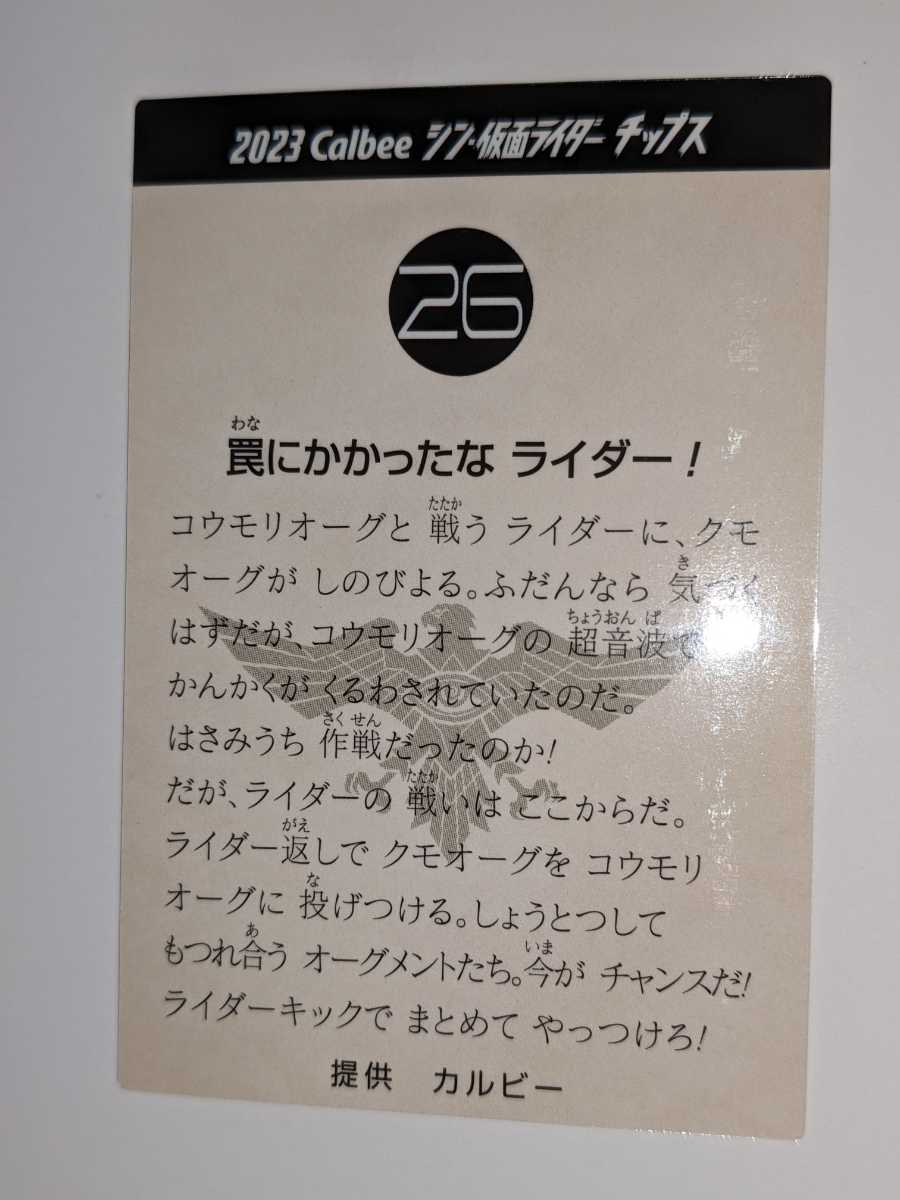 2023 Calbee シン・仮面ライダー チップス
26
罠にかかったな ライダー！
コウモリオーグと 戦う ライダーに、クモ
オーグが しのびよる。ふだんなら 気づく
はずだが、コウモリオーグの 超音波で
かんかくが くるわされていたのだ。
はさみうち 作戦だったのか！
だが、ライダーの 戦いは ここからだ。
ライダー返しで クモオーグを コウモリ
オーグに 投げつける。しょうとつして
もつれ合う オーグメントたち。今が チャンスだ！
ライダーキックで まとめて やっつけろ！
提供　カルビー